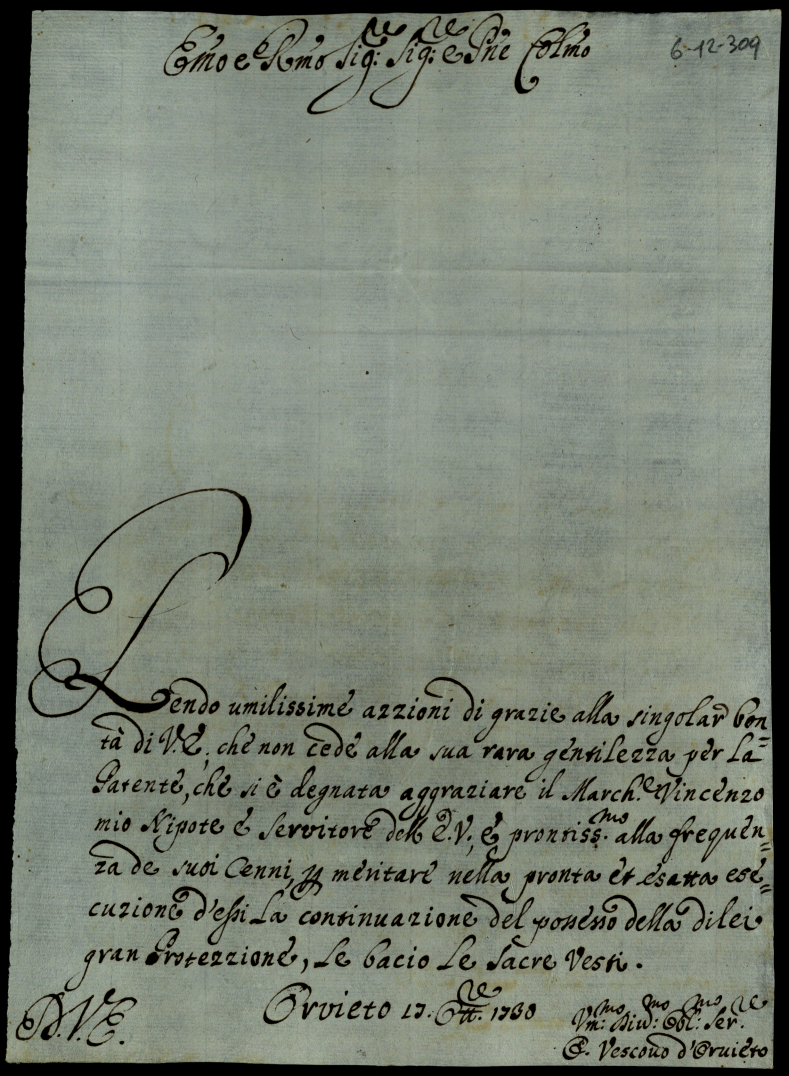 Emo e Rmo Sig:re Sig:re e Pne Colmo
6-12-309
Rendo umilissime azzioni di grazie alla singolar bon=
tà di V.E., che non cede alla sua rara gentilezza per La
Patente, che si è degnata aggraziare il March.e Vincenzo
mio Nipote e Servitore dell'E.V., e prontiss.mo alla frequen=
za de suoi Cenni, p meritare nella pronta et esatta ese=
cuzione d'essi La continuazione del possesso della di lei
gran Protezzione, Le bacio Le Sacre Vesti.
Orvieto 17. Ott.re 1730
D.V.E.
Vm:mo Div:mo Obl:mo Ser.re
O. Vescovo d'Orvieto